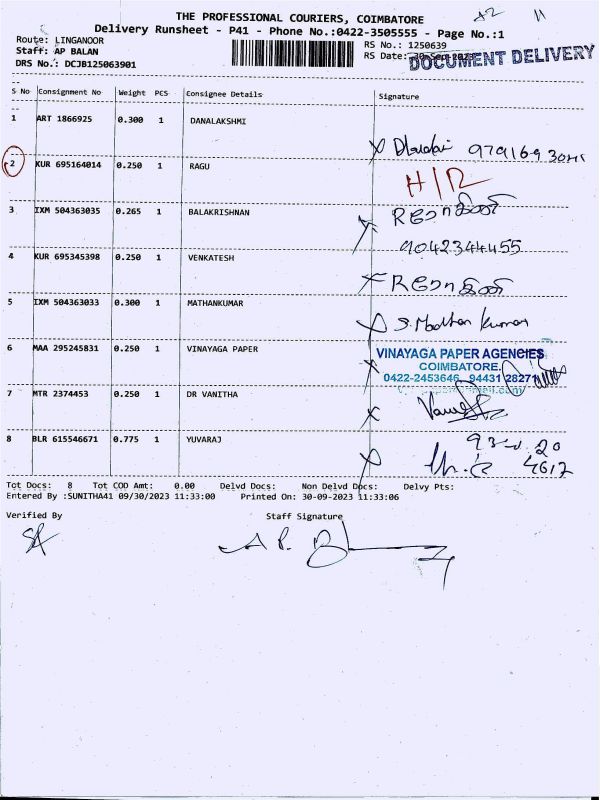 THE PROFESSIONAL COURIERS, COIMBATORE
Delivery Runsheet - P41 - Phone No.:0422-3505555 - Page No.:1
Route: LINGANOOR
RS No.: 1250639
Staff: AP BALAN
RS Date: 30-Sep-2023
DOCUMENT DELIVERY
DRS No.: DCJB125063901
S No Consignment No Weight PCS Consignee Details Signature
1 ART 1866925 0.300 1 DANALAKSHMI
2 KUR 695164014 0.250 1 RAGU
H/R
3 IXM 504363035 0.265 1 BALAKRISHNAN
9042344455
4 KUR 695345398 0.250 1 VENKATESH
5 IXM 504363033 0.300 1 MATHANKUMAR
S. Madhan Kumar
6 MAA 295245831 0.250 1 VINAYAGA PAPER
VINAYAGA PAPER AGENCIES
COIMBATORE.
0422-2453646, 94431 28271
7 MTR 2374453 0.250 1 DR VANITHA
8 BLR 615546671 0.775 1 YUVARAJ
4617
Tot Docs: 8 Tot COD Amt: 0.00 Delvd Docs: Non Delvd Docs: Delvy Pts:
Entered By :SUNITHA41 09/30/2023 11:33:00 Printed On: 30-09-2023 11:33:06
Verified By Staff Signature